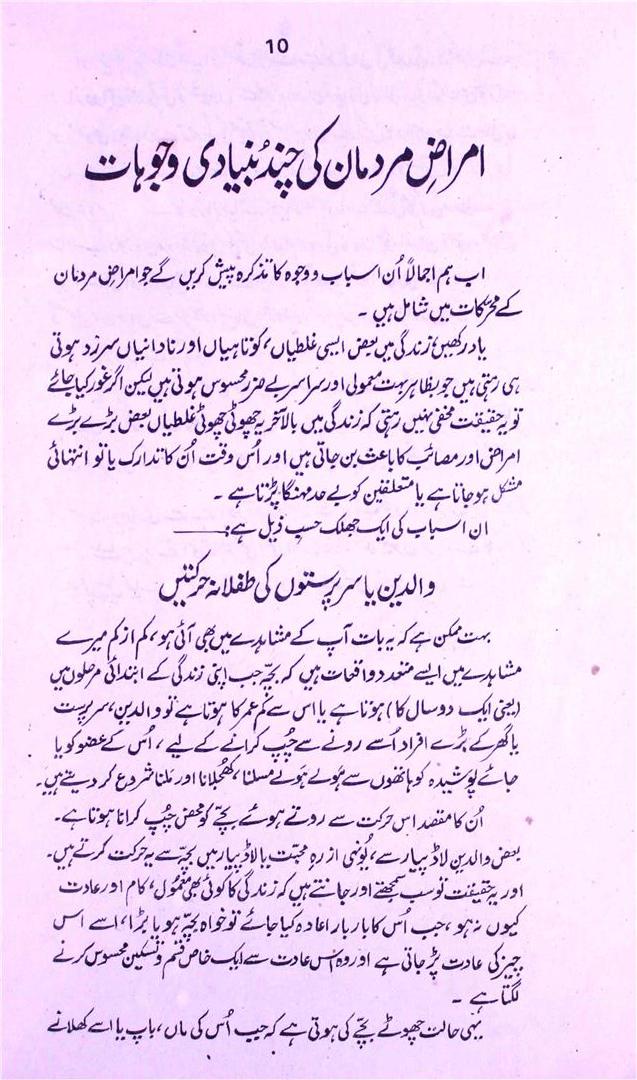 10
امراضِ مردمان کی چند بُنیادی وجوہات
اب ہم اجمالاً اُن اسباب و وجوہ کا تذکرہ پیش کریں گے جو امراضِ مردمان
کے محرکات میں شامل ہیں ۔
یاد رکھیں، زندگی میں بعض ایسی غلطیاں، کوتاہیاں اور نادانیاں سرزد ہوتی
ہی رہتی ہیں جو بظاہر بہت معمولی اور سراسر بے ضرر محسوس ہوتی ہیں لیکن اگر غور کیا جائے
تو یہ حقیقت مخفی نہیں رہتی کہ زندگی میں بالآخر یہ چھوٹی چھوٹی غلطیاں بعض بڑے بڑے
امراض اور مصائب کا باعث بن جاتی ہیں اور اُس وقت اُن کا تدارک یا تو انتہائی
مشکل ہو جاتا ہے یا متعلقین کو بے حد مہنگا پڑتا ہے ۔
ان اسباب کی ایک جھلک حسبِ ذیل ہے :
والدین یا سرپرستوں کی طفلانہ حرکتیں
بہت ممکن ہے کہ یہ بات آپ کے مشاہدے میں بھی آئی ہو، کم از کم میرے
مشاہدے میں ایسے متعدد واقعات ہیں کہ بچہ جب اپنی زندگی کے ابتدائی مرحلوں میں
(یعنی ایک دو سال کا) ہوتا ہے یا اس سے کم عمر کا ہوتا ہے تو والدین، سرپرست
یا گھر کے بڑے افراد اُسے رونے سے چُپ کرانے کے لیے ، اُس کے عضو کو یا
جائے پوشیدہ کو ہاتھوں سے ہولے ہولے مسلنا، کھجلانا اور ملنا شروع کر دیتے ہیں۔
اُن کا مقصد اس حرکت سے روتے ہوئے بچے کو محض چُپ کرانا ہوتا ہے۔
بعض والدین لاڈ پیار سے، یُونہی از رہِ محبت یا لاڈ پیار میں بچہ سے یہ حرکت کرتے ہیں۔
اور یہ حقیقت تو سب سمجھتے اور جانتے ہیں کہ زندگی کا کوئی بھی معمول، کام اور عادت
کیوں نہ ہو ، جب اُس کا بار بار اعادہ کیا جائے تو خواہ بچہ ہو یا بڑا، اسے اس
چیز کی عادت پڑ جاتی ہے اور وہ اس عادت سے ایک خاص قسم و تسکین محسوس کرنے
لگتا ہے ۔
یہی حالت چھوٹے بچے کی ہوتی ہے کہ جب اُس کی ماں، باپ یا اسے کھلانے